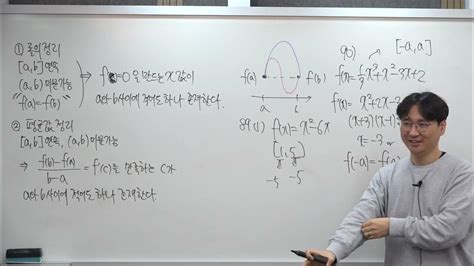 ① 롤의 정리
[a,b] 연속
(a,b) 미분가능
"f(a)=f(b)"
⇒ f'(x)=0 을 만드는 x값이
a와 b사이에 적어도 하나 존재한다.
② 평균값 정리
[a,b] 연속, (a,b) 미분가능
⇒ f(b)-f(a) / b-a = f'(c)을 만족하는 c가
a와 b사이에 적어도 하나 존재한다
f(a) f(b)
a b
89) f(x)=x²-6x
[1, 5]
-5 -5
90) [-a, a]
f(x)=⅓x³+x²-3x+2
f'(x)=x²+2x-3
(x+3)(x-1)
x=-3 or
f(-a)=f(a)